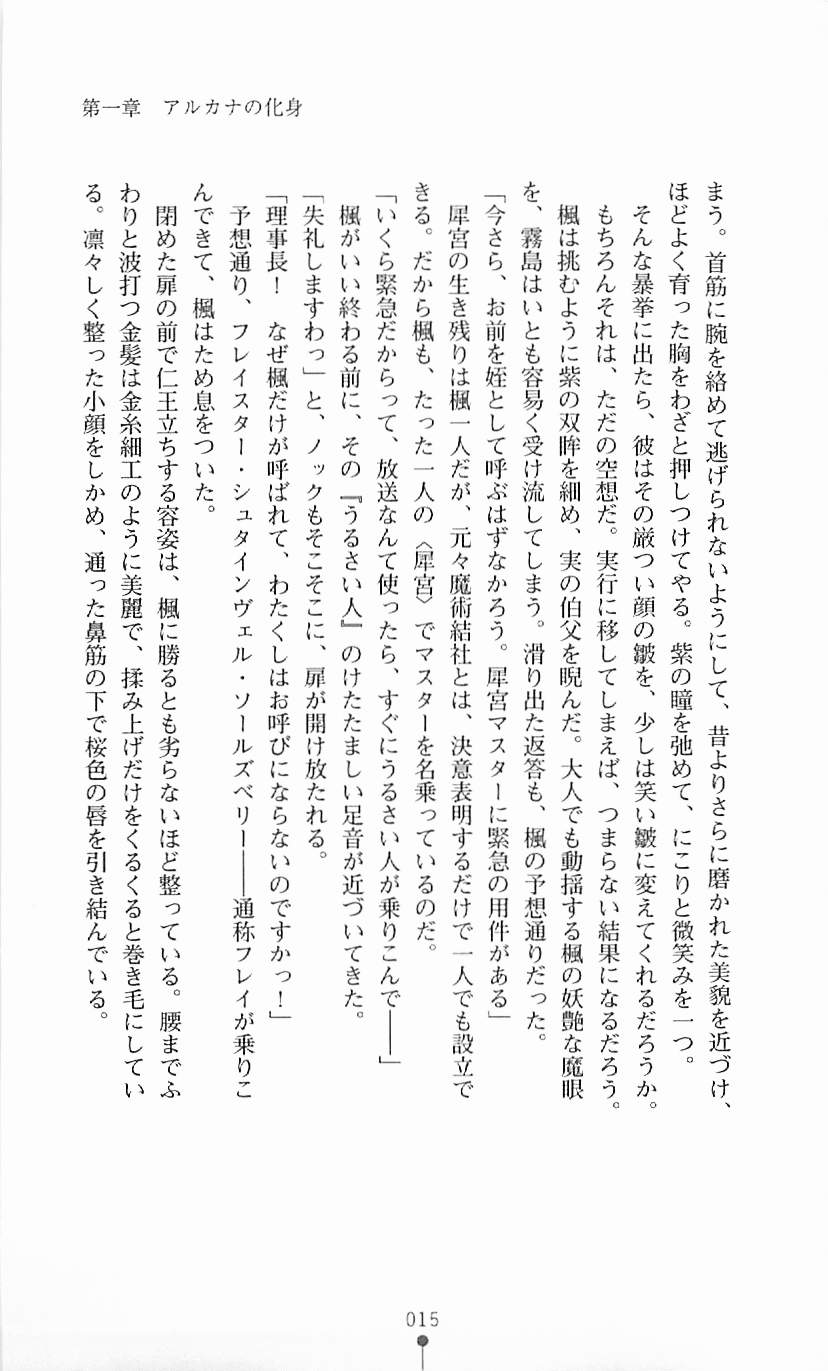 第一章　アルカナの化身
まう。首筋に腕を絡めて逃げられないようにして、昔よりさらに磨かれた美貌を近づけ、
ほどよく育った胸をわざと押しつけてやる。紫の瞳を弛めて、にこりと微笑みを一つ。
そんな暴挙に出たら、彼はその厳つい顔の皺を、少しは笑い皺に変えてくれるだろうか。
もちろんそれは、ただの空想だ。実行に移してしまえば、つまらない結果になるだろう。
楓は挑むように紫の双眸を細め、実の伯父を睨んだ。大人でも動揺する楓の妖艶な魔眼
を、霧島はいとも容易く受け流してしまう。滑り出た返答も、楓の予想通りだった。
「今さら、お前を姪として呼ぶはずなかろう。犀宮マスターに緊急の用件がある」
犀宮の生き残りは楓一人だが、元々魔術結社とは、決意表明するだけで一人でも設立で
きる。だから楓も、たった一人の〈犀宮〉でマスターを名乗っているのだ。
「いくら緊急だからって、放送なんて使ったら、すぐにうるさい人が乗りこんで――」
楓がいい終わる前に、その『うるさい人』のけたたましい足音が近づいてきた。
「失礼しますわっ」と、ノックもそこそこに、扉が開け放たれる。
「理事長！　なぜ楓だけが呼ばれて、わたくしはお呼びにならないのですかっ！」
予想通り、フレイスター・シュタインヴェル・ソールズベリー――通称フレイが乗りこ
んできて、楓はため息をついた。
閉めた扉の前で仁王立ちする容姿は、楓に勝るとも劣らないほど整っている。腰までふ
わりと波打つ金髪は金糸細工のように美麗で、揉み上げだけをくるくると巻き毛にしてい
る。凛々しく整った小顔をしかめ、通った鼻筋の下で桜色の唇を引き結んでいる。
015